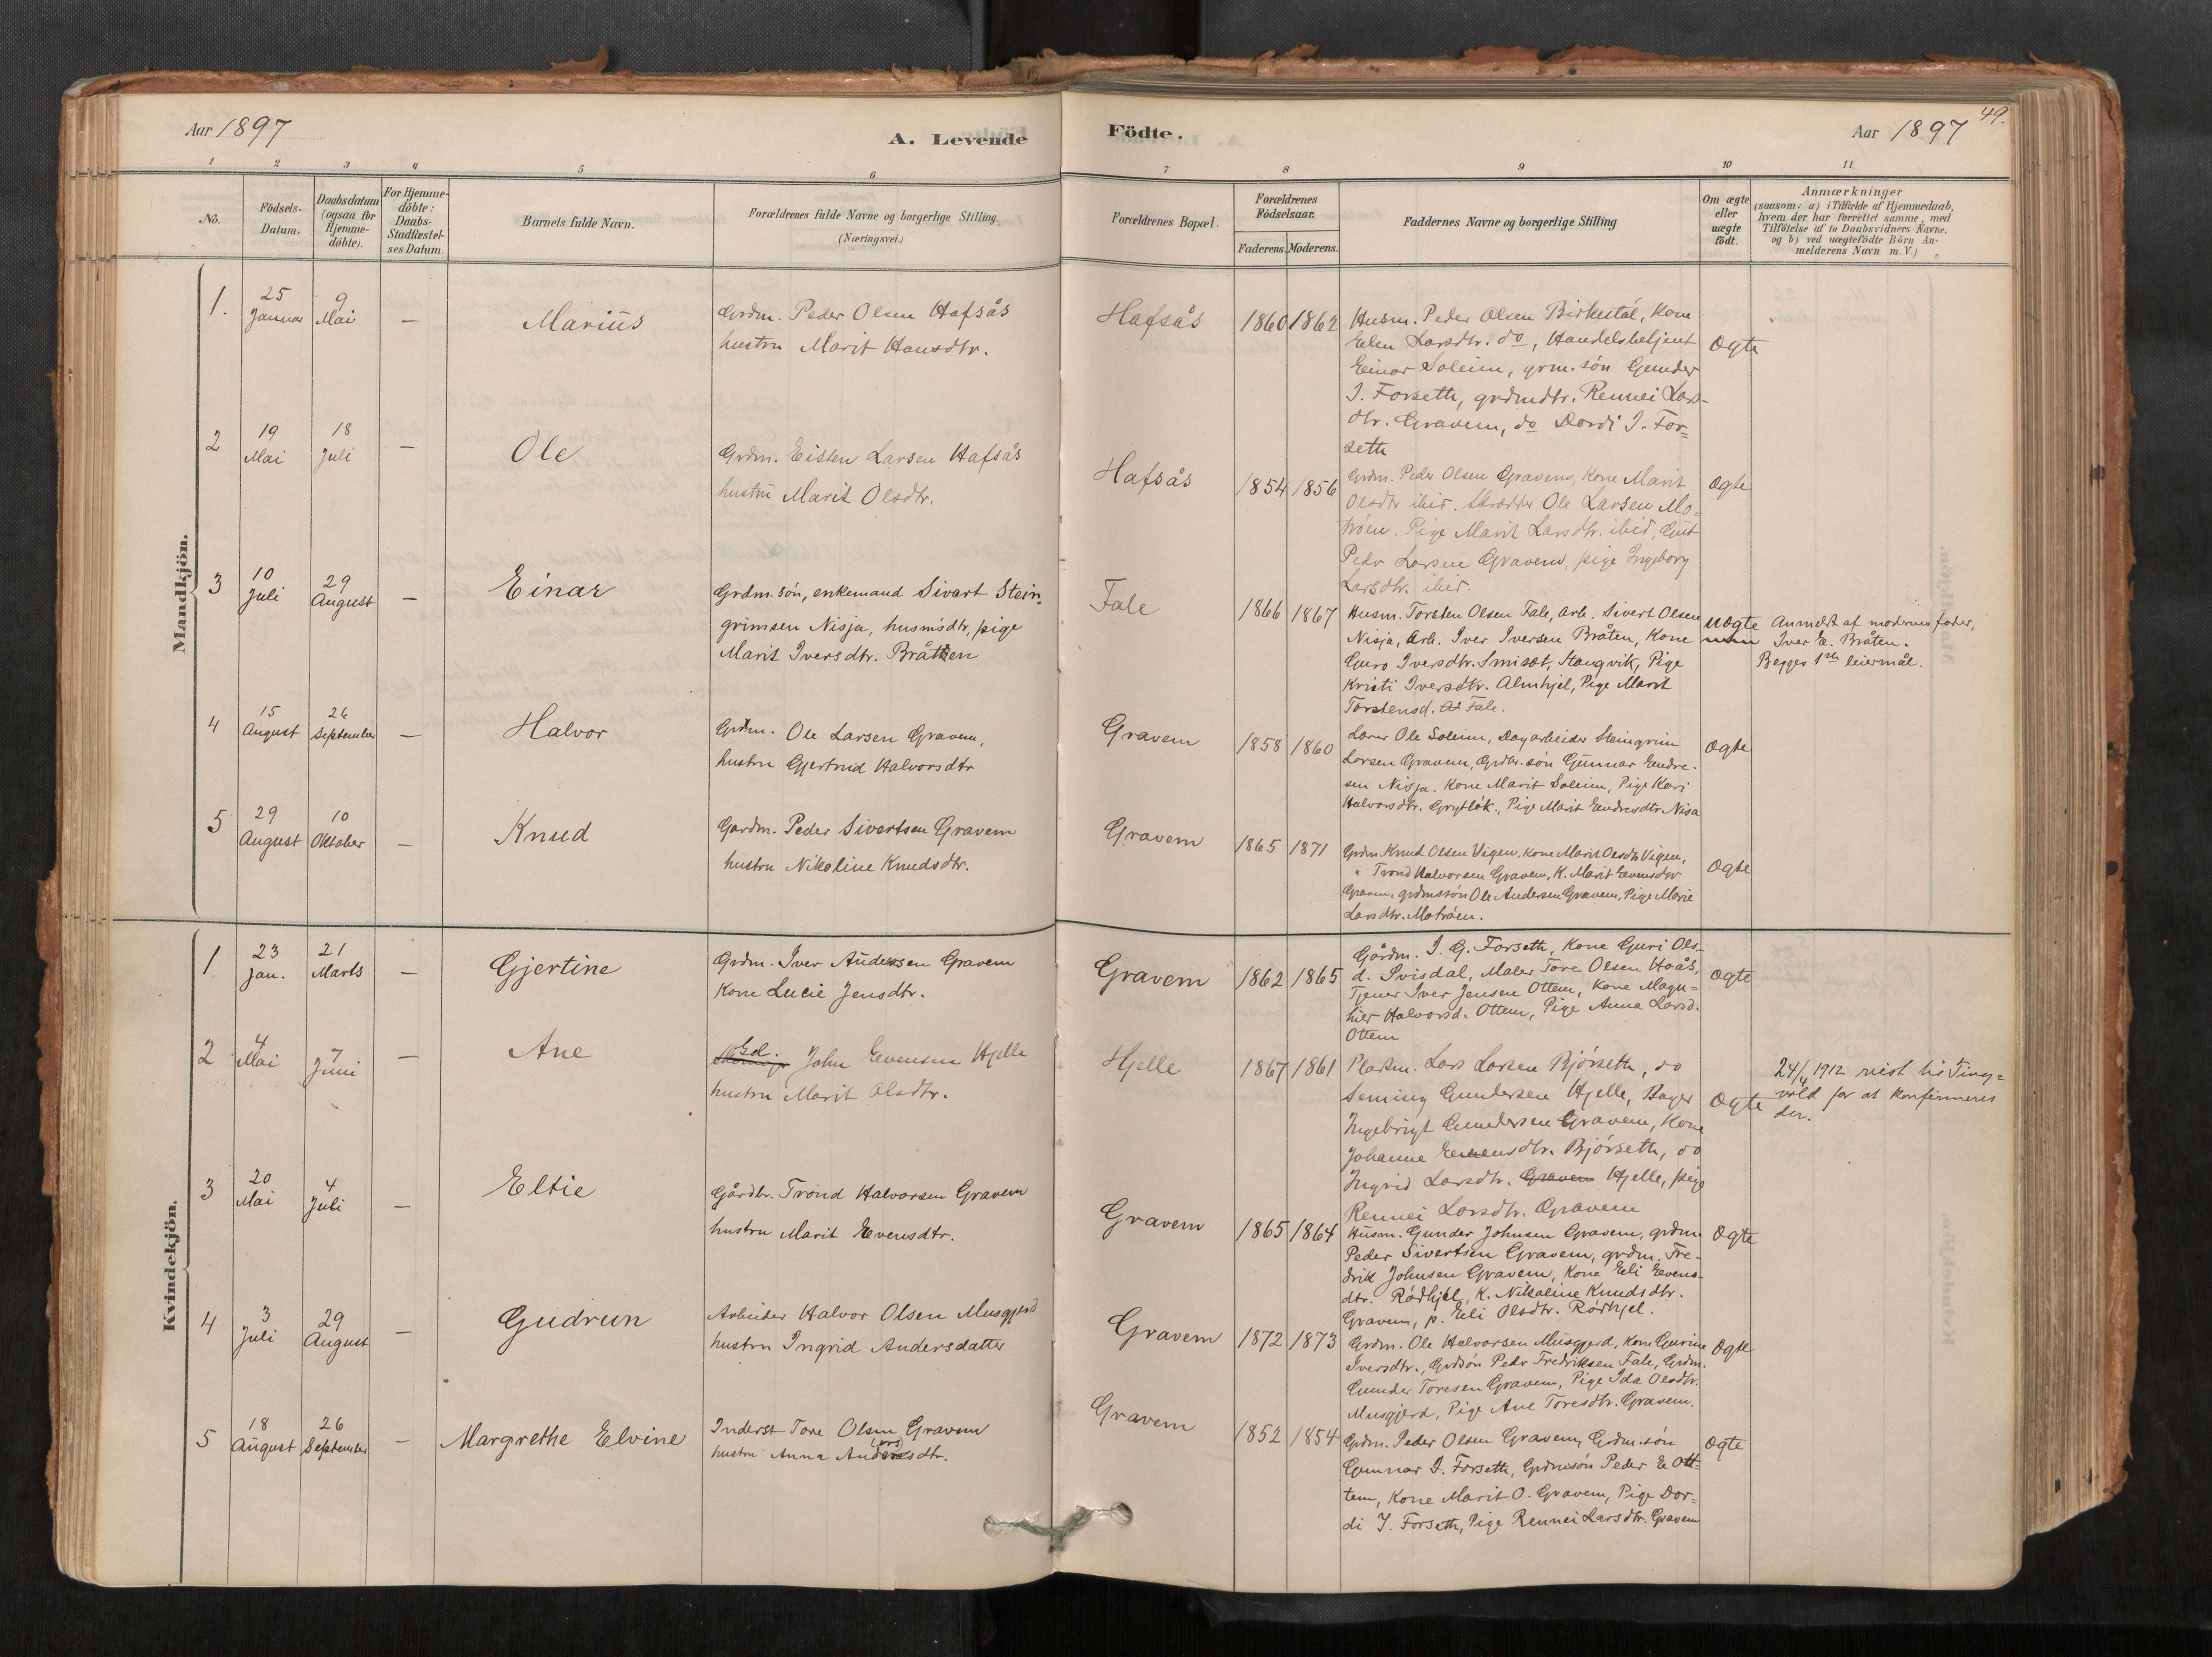 Aar 1897
A. Levende
1 2 3 4 5 6
No.
Födsels-
Datum.
Daabsdatum
(ogsaa for
Hjemme-
döbte).
For Hjemme-
döbte:
Daabs-
Stadfæstel-
ses Datum.
Barnets fulde Navn.
Forældrenes fulde Navne og borgerlige Stilling.
(Næringsvei.)
Mandkjön.
1. 25 Januar 9 Mai — Marius
Grdm. Peder Olsen Hafsås
hustru Marit Hansdtr.
2 19 Mai 18 Juli — Ole
Grdm. Eisten Larsen Hafsås
hustru Marit Olsdtr.
3 10 Juli 29 August — Einar
Grdm. søn, enkemand Sivart Stein-
grimsen Nisja, husm'sdtr, pige
Marit Iversdtr. Bråtten
4 15 August 26 September — Halvor
Grdm. Ole Larsen Gravem,
hustru Gjertrud Halvorsdtr
5 29 August 10 Oktober — Knud
Gardm. Peder Sivertsen Gravem
hustru Nikoline Knudsdtr.
Kvindekjön.
1 23 Jan. 21 Marts — Gjertine
Grdm. Iver Andersen Gravem
Kone Lucie Jensdtr.
2 4 Mai 7 Juni — Ane
Gel. John Evensen Hjelle
hustru Marit Olsdtr.
3 20 Mai 4 Juli — Eltie
Gårdbr. Trond Halvorsen Gravem
hustru Marit Evensdtr.
4 3 Juli 29 August — Gudrun
Arbeider Halvor Olsen Musgjerd
hustru Ingrid Andersdatter
5 18 August 26 September — Margrethe Elvine
Inderst Tore Olsen Gravem
hustru Anna Andersdtr.
49.
Födte.
Aar 1897
7 8 9 10 11
Forældrenes Bopæl.
Forældrenes
Födselsaar.
Faderens. Moderens.
Faddernes Navne og borgerlige Stilling
Om ægte
eller
uægte
födt.
Anmærkninger
(saasom: a) i Tilfælde af Hjemmedaab,
hvem der har forrettet samme, med
Tilföielse af to Daabsvidners Navne.
og b) ved uægtefödte Börn An-
melderens Navn m.V.)
Hafsås 1860 1862 Husm. Peder Olsen Birkestøl, Kone
Eelen Larsdtr. do, Handelsbetjent Ægte
Einar Soleim, grm. søn Gunder
I. Forseth, grdmdtr. Rennei Lars-
dtr. Gravem, do Dordi I. For-
seth
Hafsås 1854 1856 Grdm. Peder Olsen Gravem, Kone Marit Ægte
Olsdtr ibid. Skrædder Ole Larsen Mo-
trøen. Pige Marit Larsdtr. ibid, Gut
Peder Larsen Gravem, pige Ingeborg
Larsdtr. ibid.
Fale 1866 1867 Husm. Torsten Olsen Fale, Arb. Sivert Olsen Uægte
Nisja, Arb. Iver Iversen Bråten, Kone
Guro Iversdtr. Smisæt, Stangvik, Pige
Kristi Iversdtr. Almhjel, Pige Marit
Torstensd. Fale.
Anmeldt af moderens fader,
Iver E. Bråten.
Begges 1ste leiermål.
Gravem 1858 1860 Lærer Ole Soleim, Dagarbeider Steingrim Ægte
Larsen Gravem, Grdbr. søn Gunnar Eendre-
sen Nisja. Kone Marit Soleim, Pige Kari
Halvorsdtr. Grytløk., Pige Marit Eendresdtr. Nisja
Gravem 1865 1871 Grdm. Knud Olsen Vigen, Kone Marit Olsdtr Vigen,
" Trond Halvorsen Gravem, K. Marit Evensdtr Ægte
Gravem, grdmssøn Ole Andersen Gravem, Pige Marie
Larsdtr. Motrøen.
Gravem 1862 1865 Gårdm. I. G. Forseth, Kone Guri Ols-
d. Svisdal, Maler Tore Olsen Hoås, Ægte
Tjener Iver Jensen Ottem, Kone Magn-
hier Halvorsd. Ottem, Pige Anna Larsd.
Ottem
Hjelle 1867 1861 Pladsm. Lars Larsen Bjørseth, do
Seming Gundersen Hjelle, Bager Ægte
Ingebrigt Gundersen Gravem, Kone
Johanne Evensdtr. Bjørseth, do
Ingrid Larsdtr. Gravem Hjelle, pige
Rennei Larsdtr. Gravem
24/4 1912 reist til Ting-
vold for at konfirmeres
der.
Gravem 1865 1864 Husm. Gunder Johnsen Gravem, grdm Ægte
Peder Sivertsen Gravem, grdm. Fre-
drik Johnsen Gravem, Kone Eeli Eevens-
dtr. Rødhjel, K. Nikoline Knudsdtr.
Gravem, p. Eeli Olsdtr. Rødhjel.
Gravem 1872 1873 Grdm. Ole Halvorsen Musgjerd, Kone Gurine Ægte
Iversdtr., Grdsøn Peder Fredriksen Fale, Grdm.
Gunder Toresen Gravem, Pige Ida Olsdtr.
Musgjerd, Pige Ane Toresdtr. Gravem.
Gravem 1852 1854 Grdm. Peder Olsen Gravem, Grdm. søn Ægte
Gunnar I. Forseth, Grdmsøn Peder E Ot-
tem, Kone Marit O. Gravem, Pige Dor-
di I. Forseth, Pige Rennei Larsdtr. Gravem